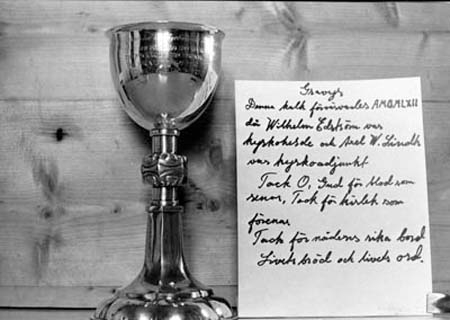 Gravyr
Denna kalk förvärvades AMDMLXII
då Wilhelm Edström var
kyrkoherde och Axel W. Lindh
var kyrkoadjunkt
Tack O, Gud för blod som
renar, Tack för kärlek som
förenar
Tack för nådens rika bord
Livets bröd och livets ord.